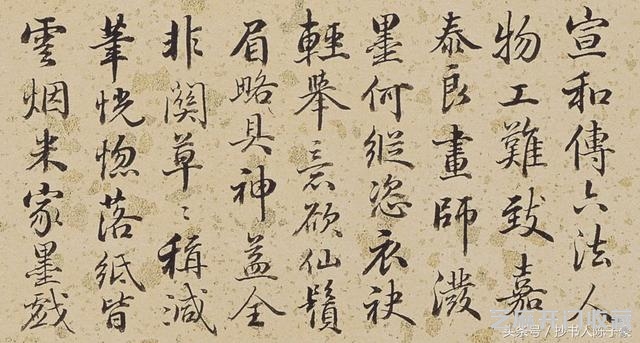 宣和傳六法人
物工難致嘉
泰良畫師潑
墨何縱恣衣袂
輕舉意欲仙鬚
眉略具神益全
非關草〻稱減
筆恍惚落紙皆
雲烟米家墨戲
头条号／抄书人陈子俊